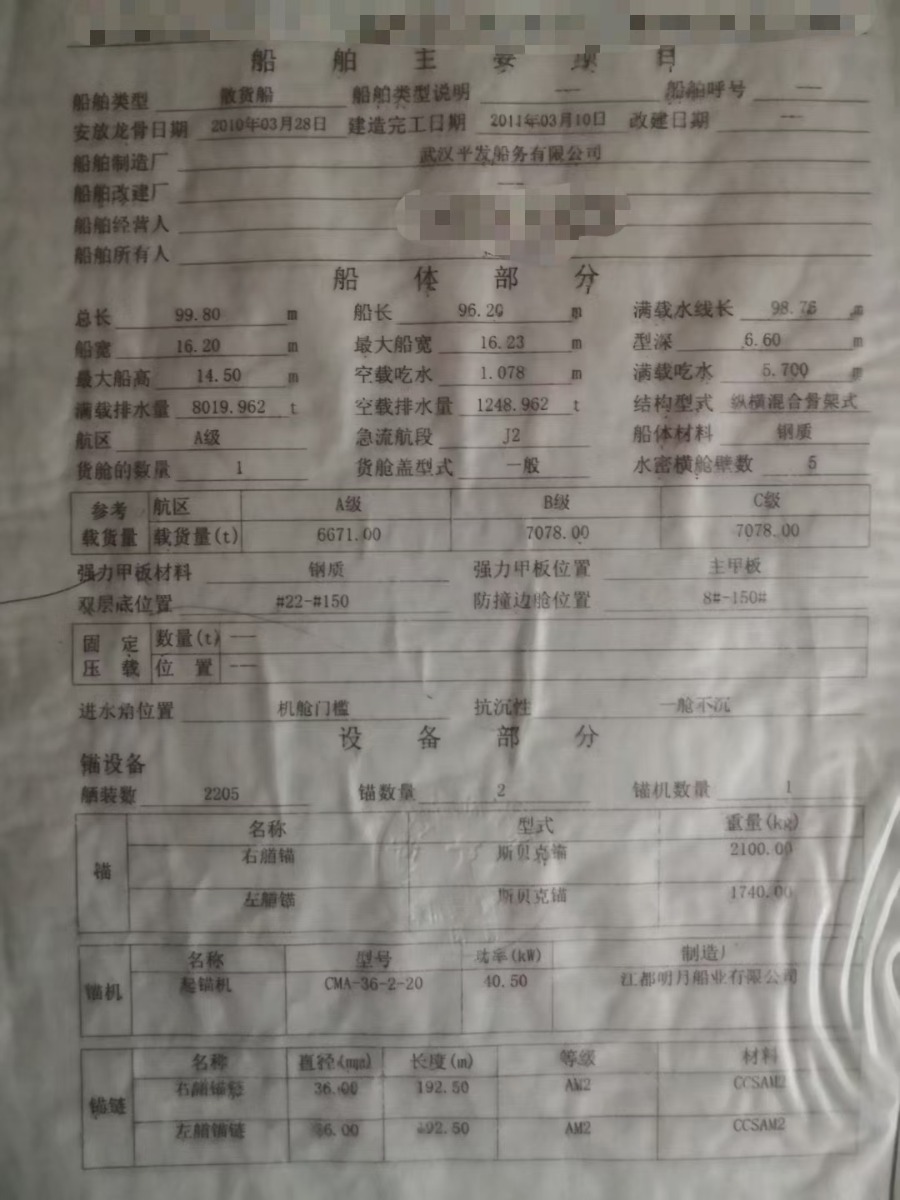 船舶主要项目
船舶类型 散货船 船舶类型说明 --- 船舶呼号 ---
安放龙骨日期 2010年03月28日 建造完工日期 2011年03月10日 改建日期 ---
船舶制造厂 武汉平发船务有限公司
船舶改建厂 ---
船舶经营人
船舶所有人
船体部分
总长 99.80 m 船长 96.20 m 满载水线长 98.75 m
船宽 16.20 m 最大船宽 16.23 m 型深 6.60 m
最大船高 14.50 m 空载吃水 1.078 m 满载吃水 5.700 m
满载排水量 8019.962 t 空载排水量 1248.962 t 结构型式 纵横混合骨架式
航区 A级 急流航段 J2 船体材料 钢质
货舱的数量 1 货舱盖型式 一般 水密横舱壁数 5
参考 航区 A级 B级 C级
载货量 载货量(t) 6671.00 7078.00 7078.00
强力甲板材料 钢质 强力甲板位置 主甲板
双层底位置 #22-#150 防撞边舱位置 8#-150#
固定 数量(t) ---
压载 位置 ---
进水角位置 机舱门槛 抗沉性 一舱不沉
设备部分
锚设备
舾装数 2205 锚数量 2 锚机数量 1
名称 型式 重量(kg)
锚 右艏锚 斯贝克锚 2100.00
左艏锚 斯贝克锚 1740.00
名称 型号 功率(kW) 制造厂
锚机 起锚机 CMA-36-2-20 40.50 江都明月船业有限公司
名称 直径(mm) 长度(m) 等级 材料
锚链 右艏锚链 36.00 192.50 AM2 CCSAM2
左艏锚链 36.00 192.50 AM2 CCSAM2